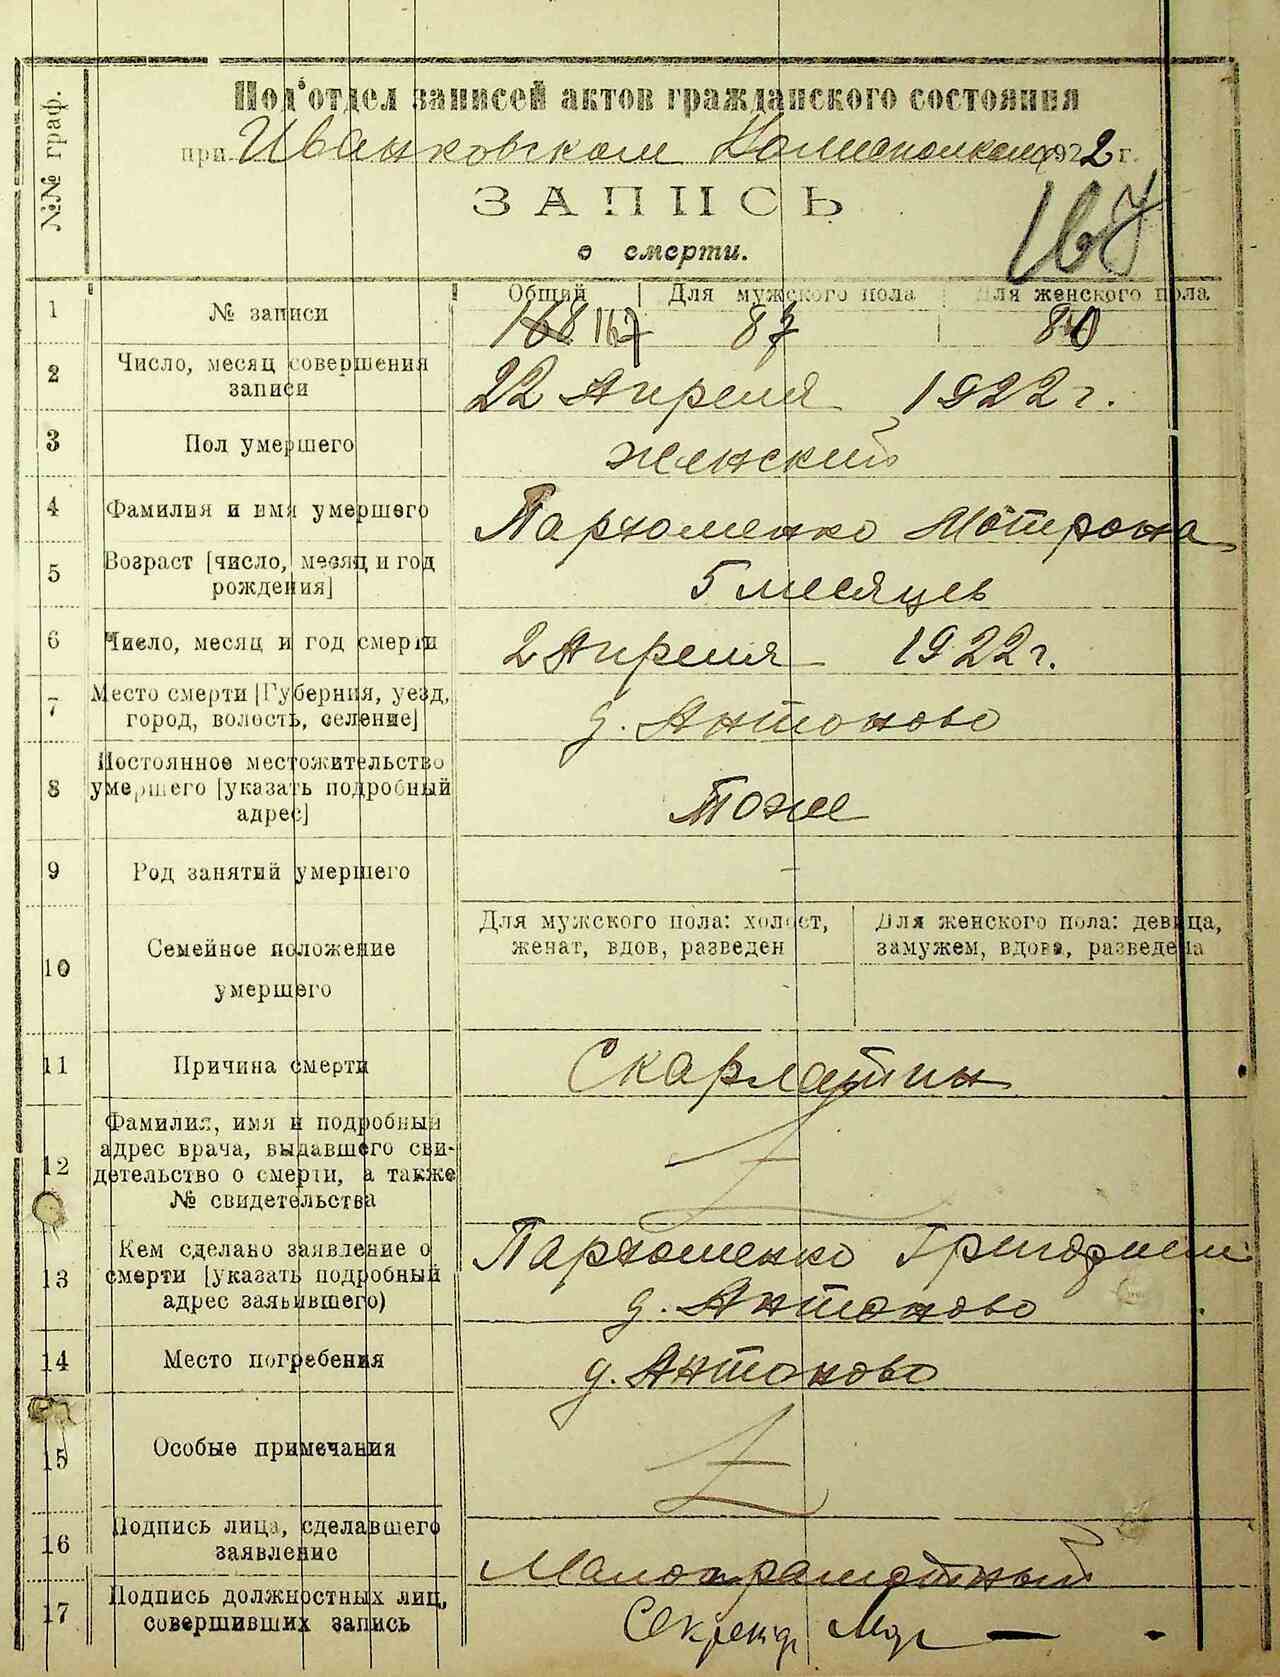 №№ граф.
Под'отдел записей актов гражданского состояния
при Иванковском Волисполкоме 1922 г.
ЗАПИСЬ
о смерти.
167
1 № записи Общий Для мужского пола Для женского пола
168 167 87 80
2 Число, месяц совершения
записи
22 Апреля 1922 г.
3 Пол умершего женский
4 Фамилия и имя умершего Пархоменко Мотрона
5 Возраст [число, месяц и год
рождения] 5 месяцев
6 Число, месяц и год смерти 2 Апреля 1922 г.
7 Место смерти [Губерния, уезд,
город, волость, селение] д. Антоново
8 Постоянное местожительство
умершего [указать подробный
адрес] Тоже
9 Род занятий умершего -
10 Семейное положение
умершего
Для мужского пола: холост,
женат, вдов, разведен
Для женского пола: девица,
замужем, вдова, разведена
11 Причина смерти Скарлатин
12 Фамилия, имя и подробный
адрес врача, выдавшего сви-
детельство о смерти, а также
№ свидетельства
13 Кем сделано заявление о
смерти [указать подробный
адрес заявившего)
Пархоменко Григорием
д. Антоново
14 Место погребения д. Антоново
15 Особые примечания
16 Подпись лица, сделавшего
заявление Малограмотный
17 Подпись должностных лиц,
совершивших запись Секретарь